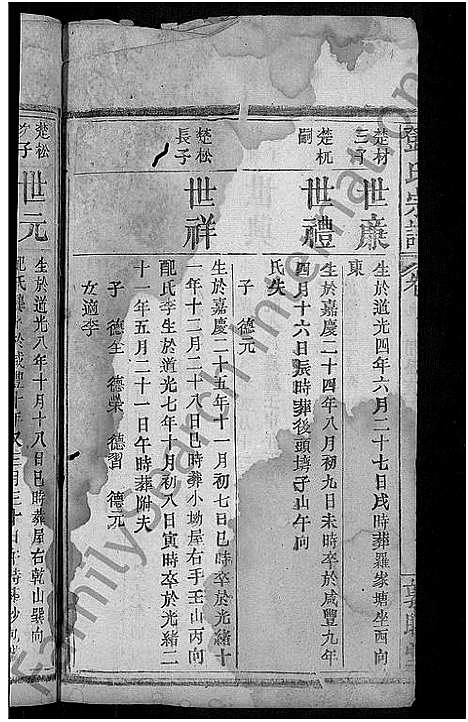 鄧氏宗譜
卷
楚材
三子
世廉
生於道光四年六月二十七日戌時葬羅家塘坐西向
東
楚杬
嗣
世禮
生於嘉慶二十四年八月初九日未時卒於咸豐九年
四月十六日辰時葬後頭塆子山午向
氏失
子 德元
楚松
長子
世祥
生於嘉慶二十五年十一月初七日巳時卒於光緒十
一年十二月二十八日巳時葬小坳屋右手壬山丙向
配氏李生於道光七年十月初八日寅時卒於光緒二
十一年五月二十一日午時葬附夫
子 德全 德榮 德習 德元
女適李
楚松
子
世元
生於道光八年十月十八日巳時葬屋右乾山巽向
FamilySearch International